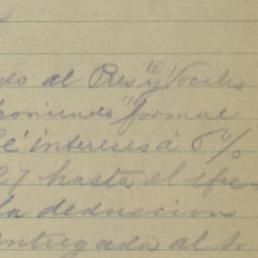 do al Pres y Vocales
poniendo "formal
é intereses á 6%
27 hasta el
la deduccion
entregada al